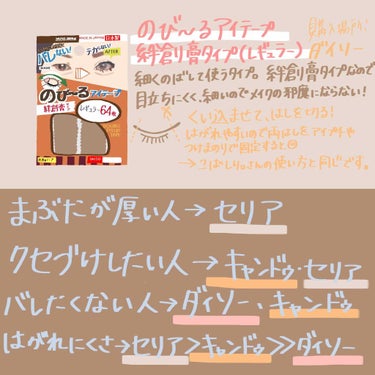 のび〜るアイテープ
購入場所:
絆創膏タイプ(レギュラー)ダイソー
細くのばして使うタイプ。絆創膏タイプなので
目立ちにくく、細いのでメイクの邪魔にならない!
くい込ませて、はしを切る!
はがれやすいので両はしをアイプチや
つけまのりで固定すると◎
バレない!
テカらない!
AFTER
のび〜る
アイテープ
絆創膏タイプ
レギュラー
64枚
まぶたが厚い人→セリア
クセづけしたい人→キャンドゥ・セリア
バレしたくない人→ダイソー・キャンドゥ
はがれにくさ→セリア>キャンドゥ>>ダイソー